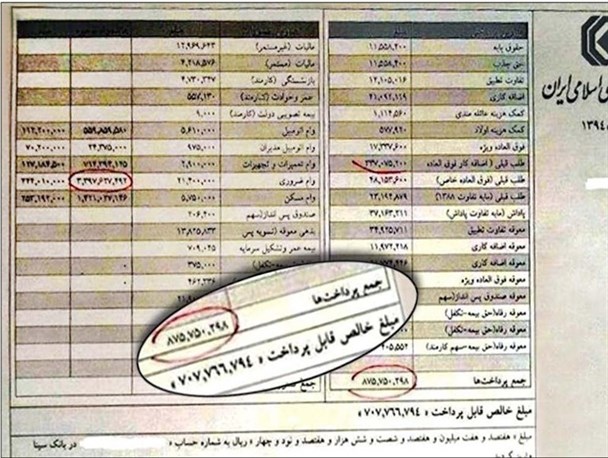 سلامی ایران
۱۳۹۴
حقوق پایه ۱۱,۵۵۸,۴۰۰
حق جذب ۱۱,۵۵۸,۴۰۰
تفاوت تطبیق ۱۲,۱۰۵,۰۱۶
اضافه کاری ۴۱,۰۹۲,۱۱۹
کمک هزینه عائله مندی ۱,۱۱۴,۵۶۰
کمک هزینه اولاد ۵۷۷,۹۲۰
فوق العاده ویژه ۱۷,۳۳۷,۶۰۰
طلب قبلی (اضافه کار فوق العاده ۳۳۷,۰۷۵,۲۰۰
طلب قبلی (فوق العاده خاص) ۴۸,۱۵۳,۶۰۰
طلب قبلی (مابه تفاوت ۱۳۸۸ ۲۳,۱۹۲,۸۷۹
پاداش (مابه تفاوت پاداش) ۳۷,۱۶۳,۲۱۱
معوقه تفاوت تطبیق ۳۴,۹۲۵,۷۱۱
معوقه اضافه کاری ۱۱,۹۷۲,۲۱۸
معوقه اضافه کاری
معوقه فوق العاده ویژه
معوقه صندوق پس انداز(سهم
معوقه رفاه(حق بیمه-تکفل)
معوقه رفاه(حق بیمه-تکفل)
معوقه رفاه(حق بیمه-سهم کارمند)
جمع پرداخت‌ها ۸۷۵,۷۵۰,۲۹۸
مالیات (غیرمستمر) ۱۲,۹۶۹,۶۴۳
مالیات (مستمر) ۴,۲۱۸,۵۷۶
بازنشستگی (کارمند) ۴,۷۳۰,۳۴۷
عمر وحوادث (کارمند) ۵۵۷,۱۳۰
بیمه تصویبی دولت (کارمند) ۹,۰۰۰
وام اتومبیل ۵,۶۱۰,۰۰۰ ۵۵۹,۸۵۹,۵۸۰ ۱۱۲,۲۰۰,۰۰۰
وام اتومبیل مدیران ۹۷۵,۰۰۰ ۲۴,۳۷۵,۰۰۰ ۷۰,۲۰۰,۰۰۰
وام تعمیرات و تجهیزات ۲,۹۰۰,۰۰۰ ۷۱۲,۲۹۴,۱۲۵ ۱۴۷,۱۸۴,۵۰۰
وام ضروری ۲۱,۴۰۰,۰۰۰ ۳,۳۹۷,۶۳۷,۴۹۲
وام مسکن ۵,۷۵۰,۰۰۰ ۱,۴۲۱,۰۳۷,۱۴۶ ۲۵۳,۱۹۲,۰۰۰
صندوق پس انداز(سهم ۲۰۶,۴۰۰
بدهی معوقه (تسویه پس ۱۳,۸۲۵,۸۳۳
بیمه عمر وتشکیل سرمایه ۷۰۹,۰۴۵
۳۷۵,۰۰۰
۴۶۲,۳۳۶
جمع پرداخت‌ها
۸۷۵,۷۵۰,۲۹۸
مبلغ خالص قابل پرداخت « ۷۰۷,۷۶۶,۷۹۴ »
مبلغ خالص قابل پرداخت « ۷۰۷,۷۶۶,۷۹۴ »
مبلغ « هفتصد و هفت میلیون و هفتصد و شصت و شش هزار و هفتصد و نود و چهار » ریال به شماره حساب « در بانک سینا